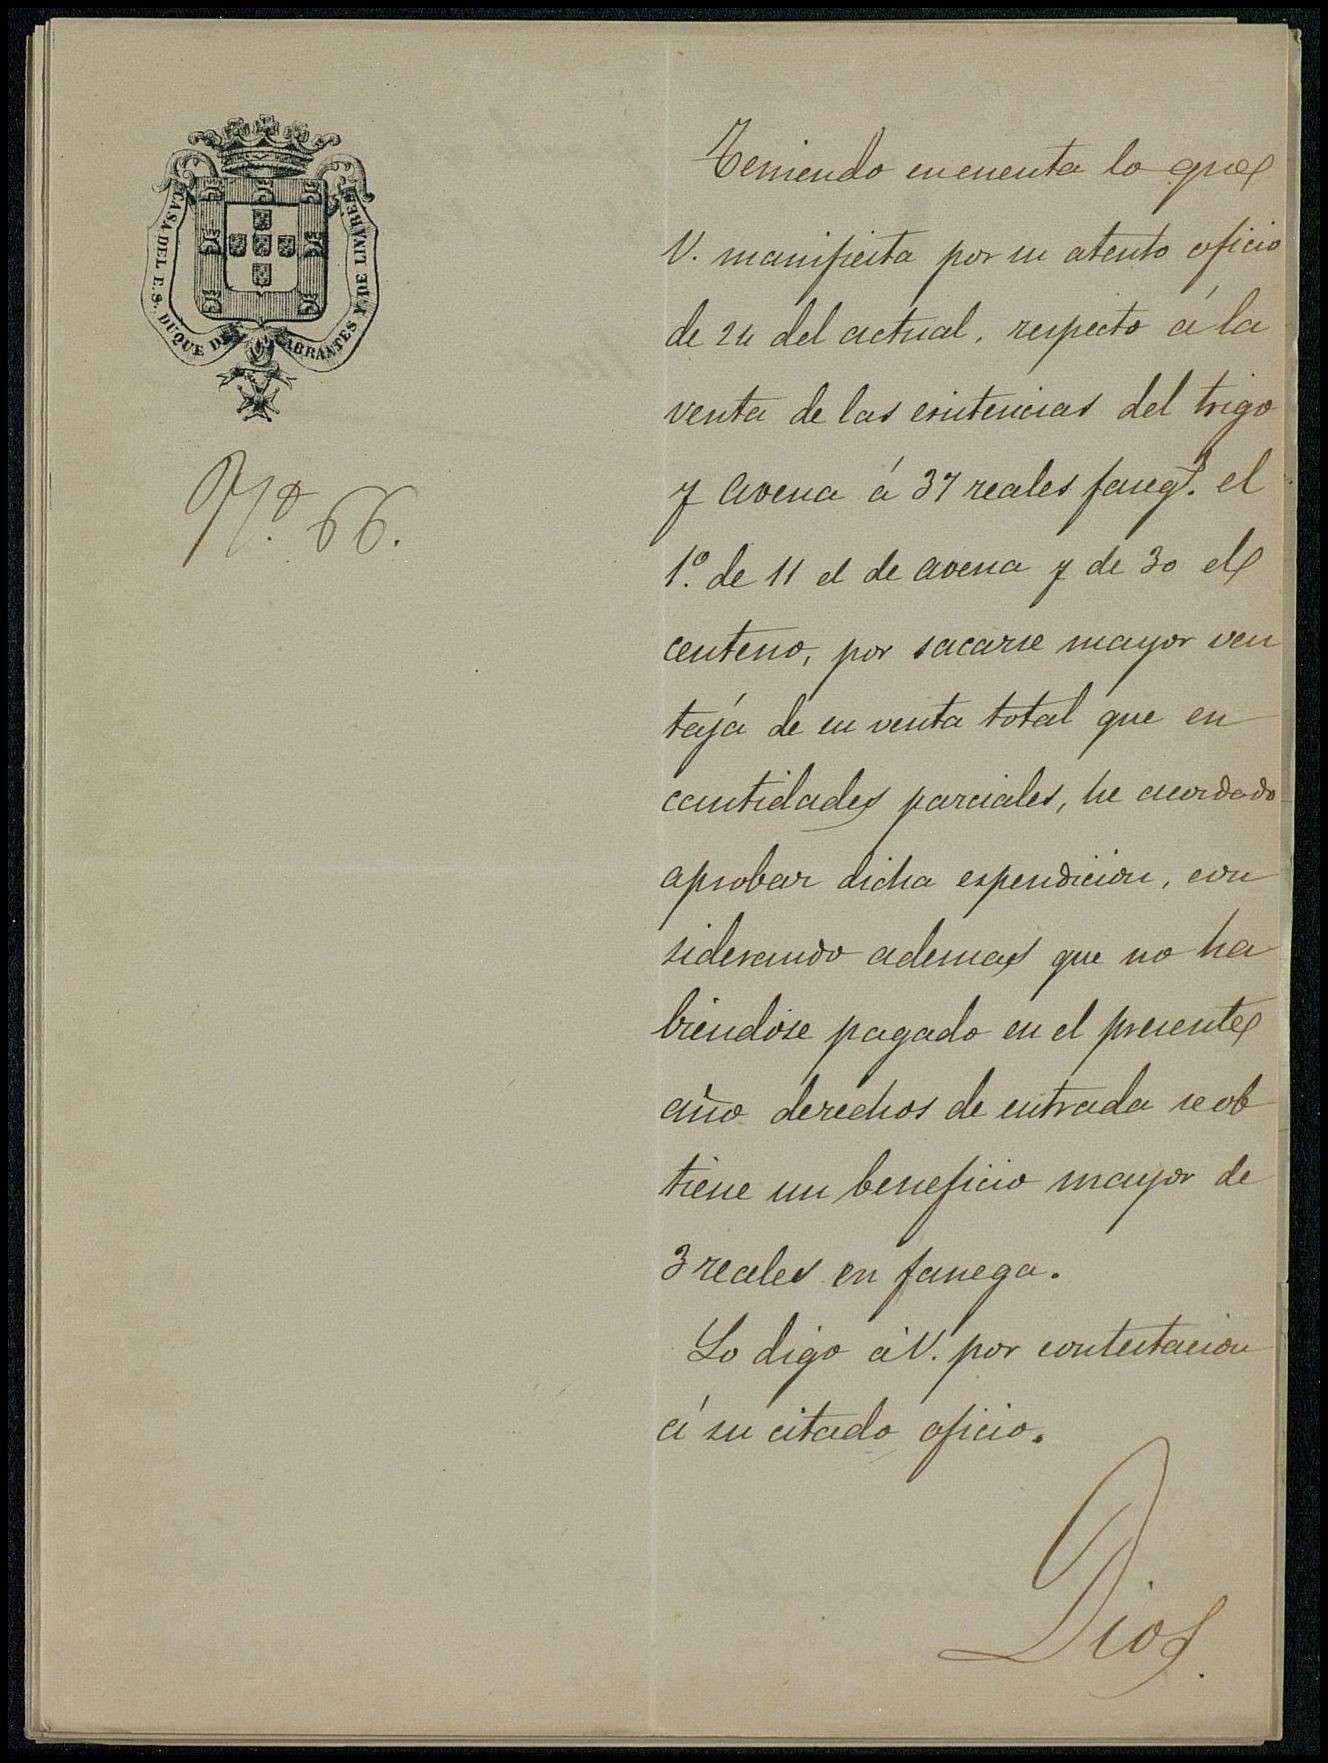 CASA DEL E.S. DUQUE DE ABRANTES Y DE LINARES
Nº. 66.
Teniendo en cuenta lo que
V. manifiesta por su atento oficio
de 24 del actual, respecto á la
venta de las existencias del trigo
y avena á 37 reales faneg.ª el
1.º de 11 el de avena y de 30 el
centeno, por sacarse mayor ven
tajá de su venta total que en
cantidades parciales, he acordado
aprobar dicha expendición, con
siderando ademas que no ha
biendose pagado en el presente
año derechos de entrada se ob
tiene un beneficio mayor de
3 reales en fanega.
Lo digo á V. por contestacion
á su citado oficio.
Dios